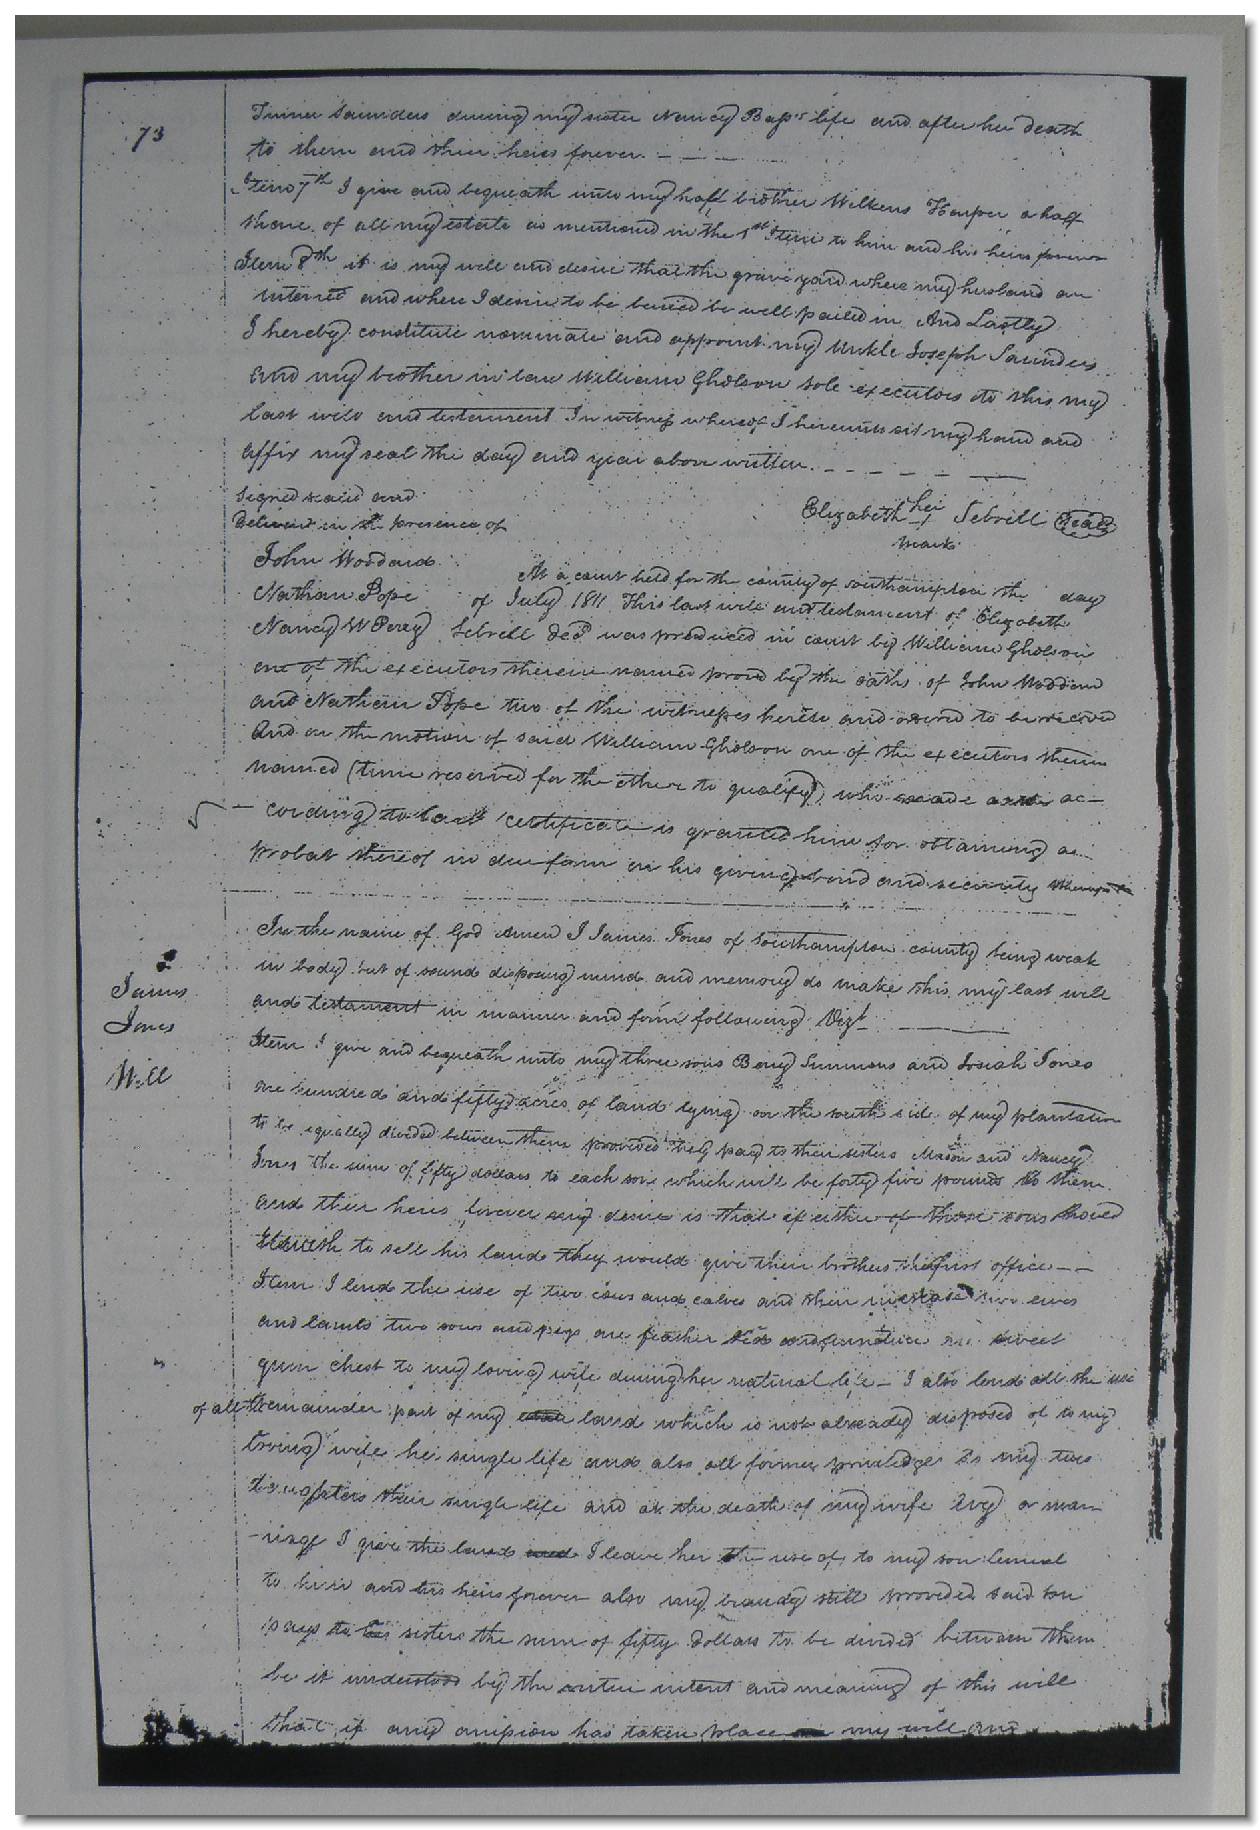 73
Turner Saunders during my sister Nancy Bass's life and after her death
to them and their heirs forever. - - - -
Item 7th I give and bequeath unto my half brother Wilkens Harper a half
share of all my estate as mentioned in the 1st Item to him and his heirs forever
Item 8th it is my will and desire that the grave yard where my husband
interred and where I desire to be buried be well pailed in And Lastly
I hereby constitute nominate and appoint my Unkle Joseph Saunders
and my brother in law William Gholson sole executors to this my
last will and testament In witness whereof I hereunto set my hand and
affix my seal the day and year above written. - - - - -
Signed seald and
Deliverd in the presence of
Elizabeth her Sebrill Seal
mark
John Woddard
Nathan Pope
Nancy W Perry
At a court held for the county of Southampton the day
of July 1811 This last will and testament of Elizabeth
Sebrill decd was produced in court by William Gholson
one of the executors therein named provd by the oaths of John Woddard
and Nathan Pope two of the witnesses hereto and ordered to be recorded
And on the motion of said William Gholson one of the executors therein
named (time reserved for the other to qualify) who made oath ac-
- cording to law certificate is granted him for obtaining a
probat thereof in due form on his giving bond and security
James
Jones
Will
In the name of God Amen I James Jones of Southampton county being weak
in body but of sound disposing mind and memory do make this my last will
and testament in manner and form following Vizt
Item I give and bequeath unto my three sons Benj Simmons and Josiah Jones
one hundred and fifty acres of land lying on the south side of my plantation
to be equally divided between them provided they pay to their sisters Mason and Nancy
Jones the sum of fifty dollars to each son which will be forty five pounds to them
and their heirs forever my desire is that if either of those sons should
to sell his land they would give their brothers the first office - -
Item I lend the use of two cows and calves and their increase two ewes
and lambs two sows and pigs one feather bed and furniture one sweet
gum chest to my loving wife during her natural life - I also lend all the use
of all the remainder part of my land which is not already disposed of to my
loving wife her single life and also all former priviledges to my two
daughters their single life and at the death of my wife or mar-
-riage I give the land I leave her the use of to my son Lemuel
to him and his heirs forever also my brandy still provided said son
pays to his sisters the sum of fifty dollars to be divided between them
be it understood by the entire intent and meaning of this will
that if any omission has taken place my will and